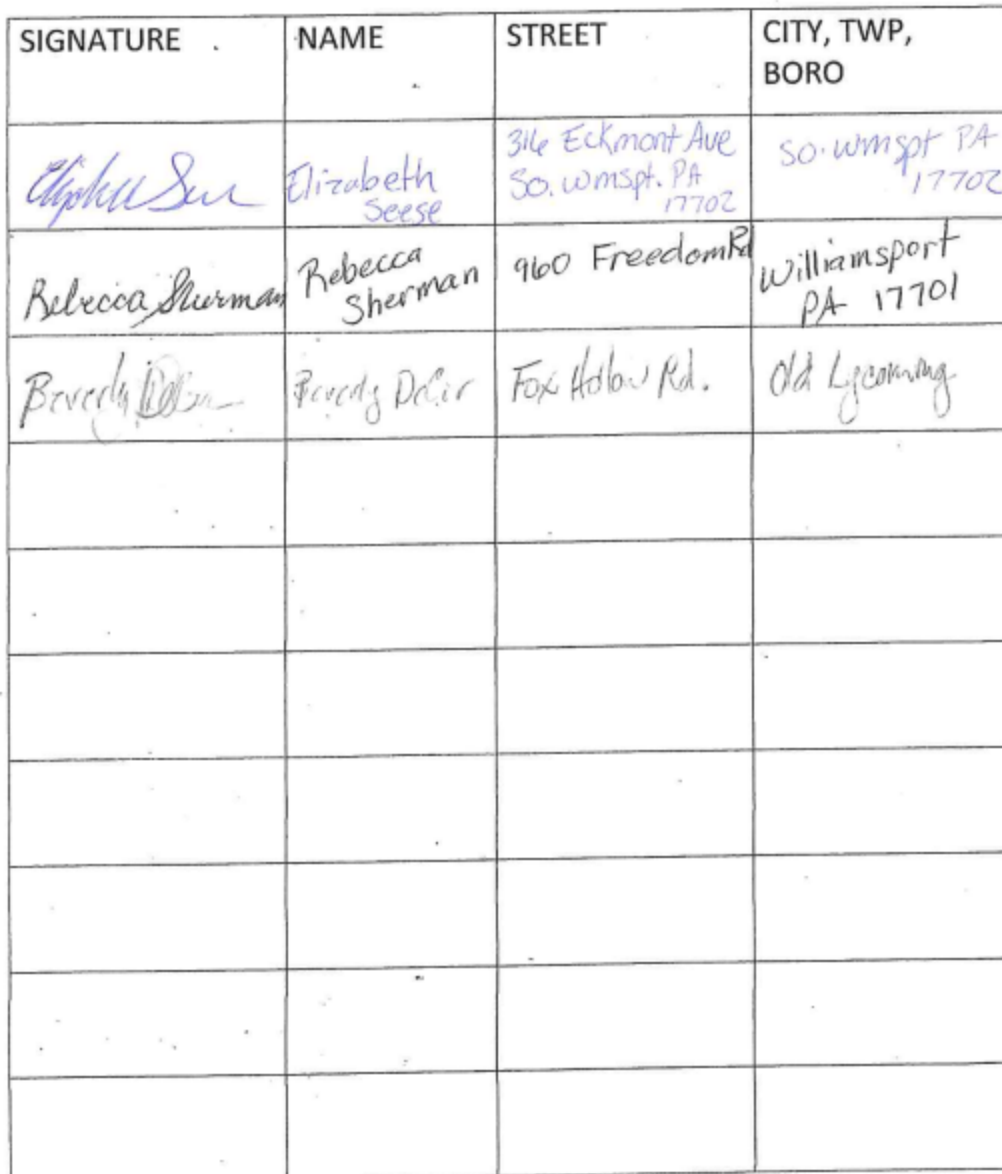 SIGNATURE
NAME
STREET
CITY, TWP,
BORO
Elizabeth
Seese
316 Eckmont Ave
So. wmspt. PA
17702
So. wmspt PA
17702
Rebecca Sherman
Rebecca
Sherman
960 Freedom Rd
Williamsport
PA 17701
Beverly
Beverly
Fox Hollow Rd.
Old Lycoming